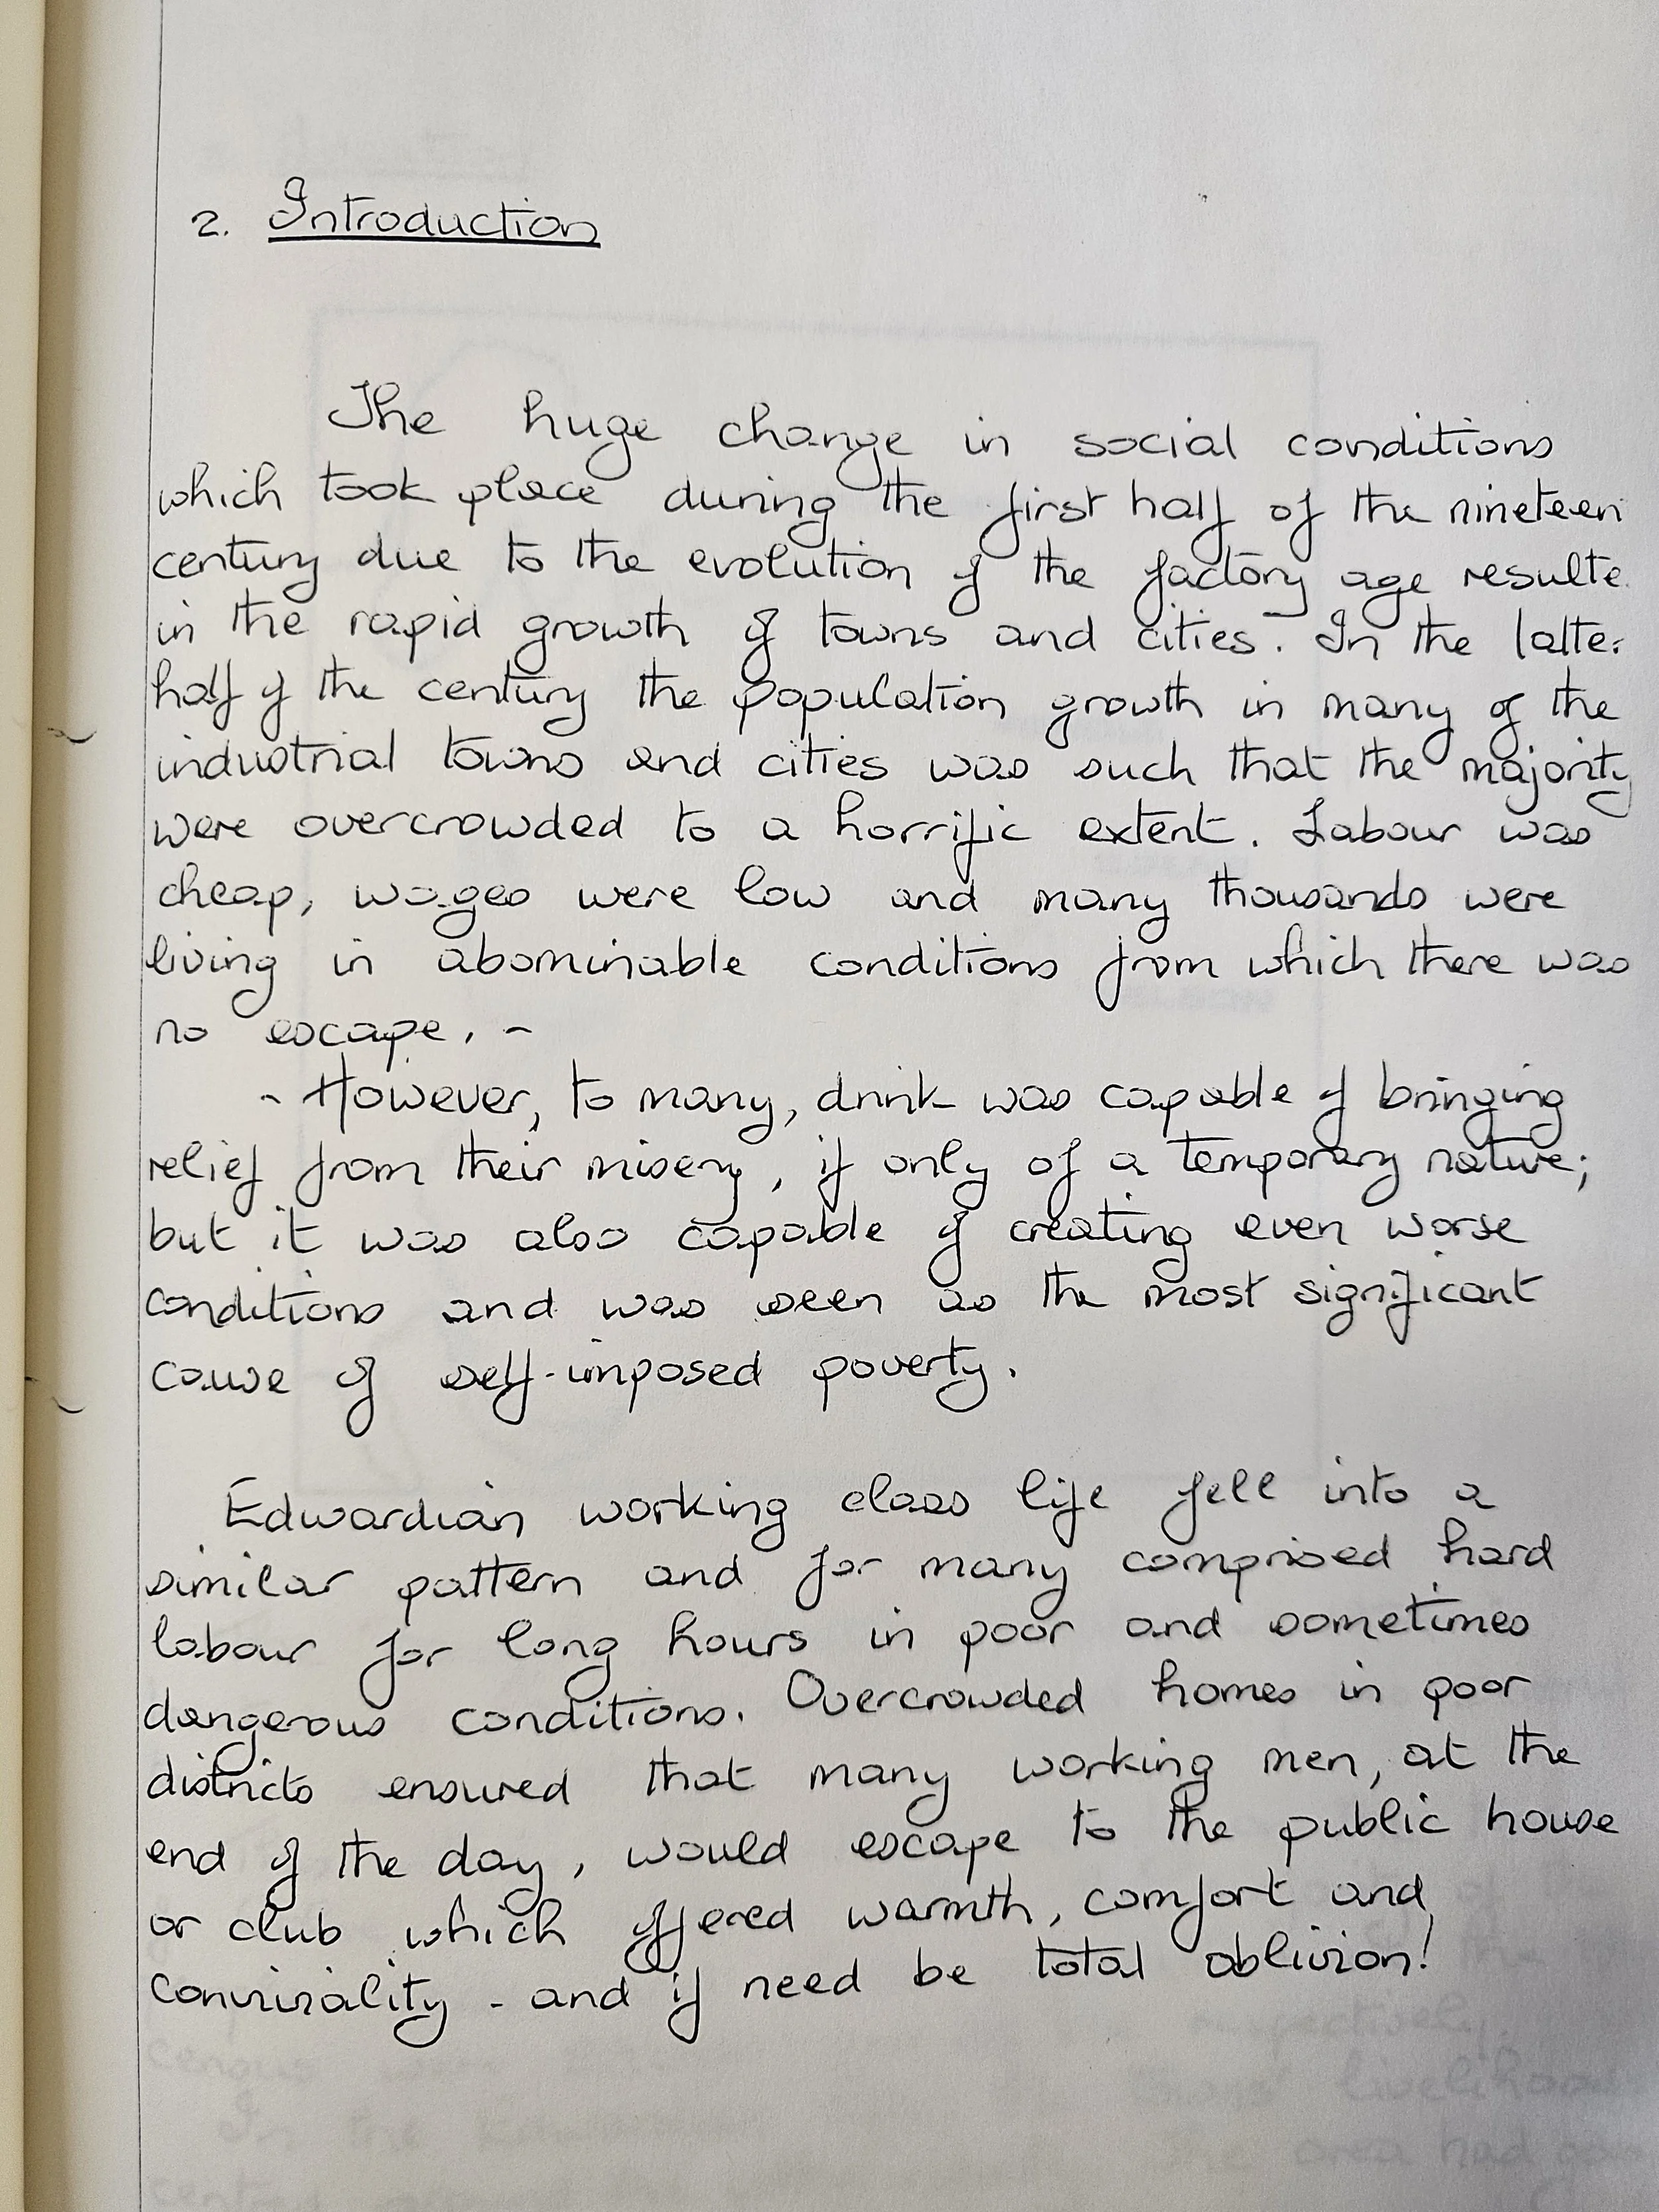 2. Introduction
The huge change in social conditions
which took place during the first half of the nineteen
century due to the evolution of the factory age resulte
in the rapid growth of towns and cities. In the latter
half of the century the population growth in many of the
industrial towns and cities was such that the majority
were overcrowded to a horrific extent. Labour was
cheap, wages were low and many thousands were
living in abominable conditions from which there was
no escape. -
- However, to many, drink was capable of bringing
relief from their misery, if only of a temporary nature;
but it was also capable of creating even worse
conditions and was seen as the most significant
cause of self-imposed poverty.
Edwardian working class life fell into a
similar pattern and for many comprised hard
labour for long hours in poor and sometimes
dangerous conditions. Overcrowded homes in poor
districts ensured that many working men, at the
end of the day, would escape to the public house
or club which offered warmth, comfort and
conviviality - and if need be total oblivion!